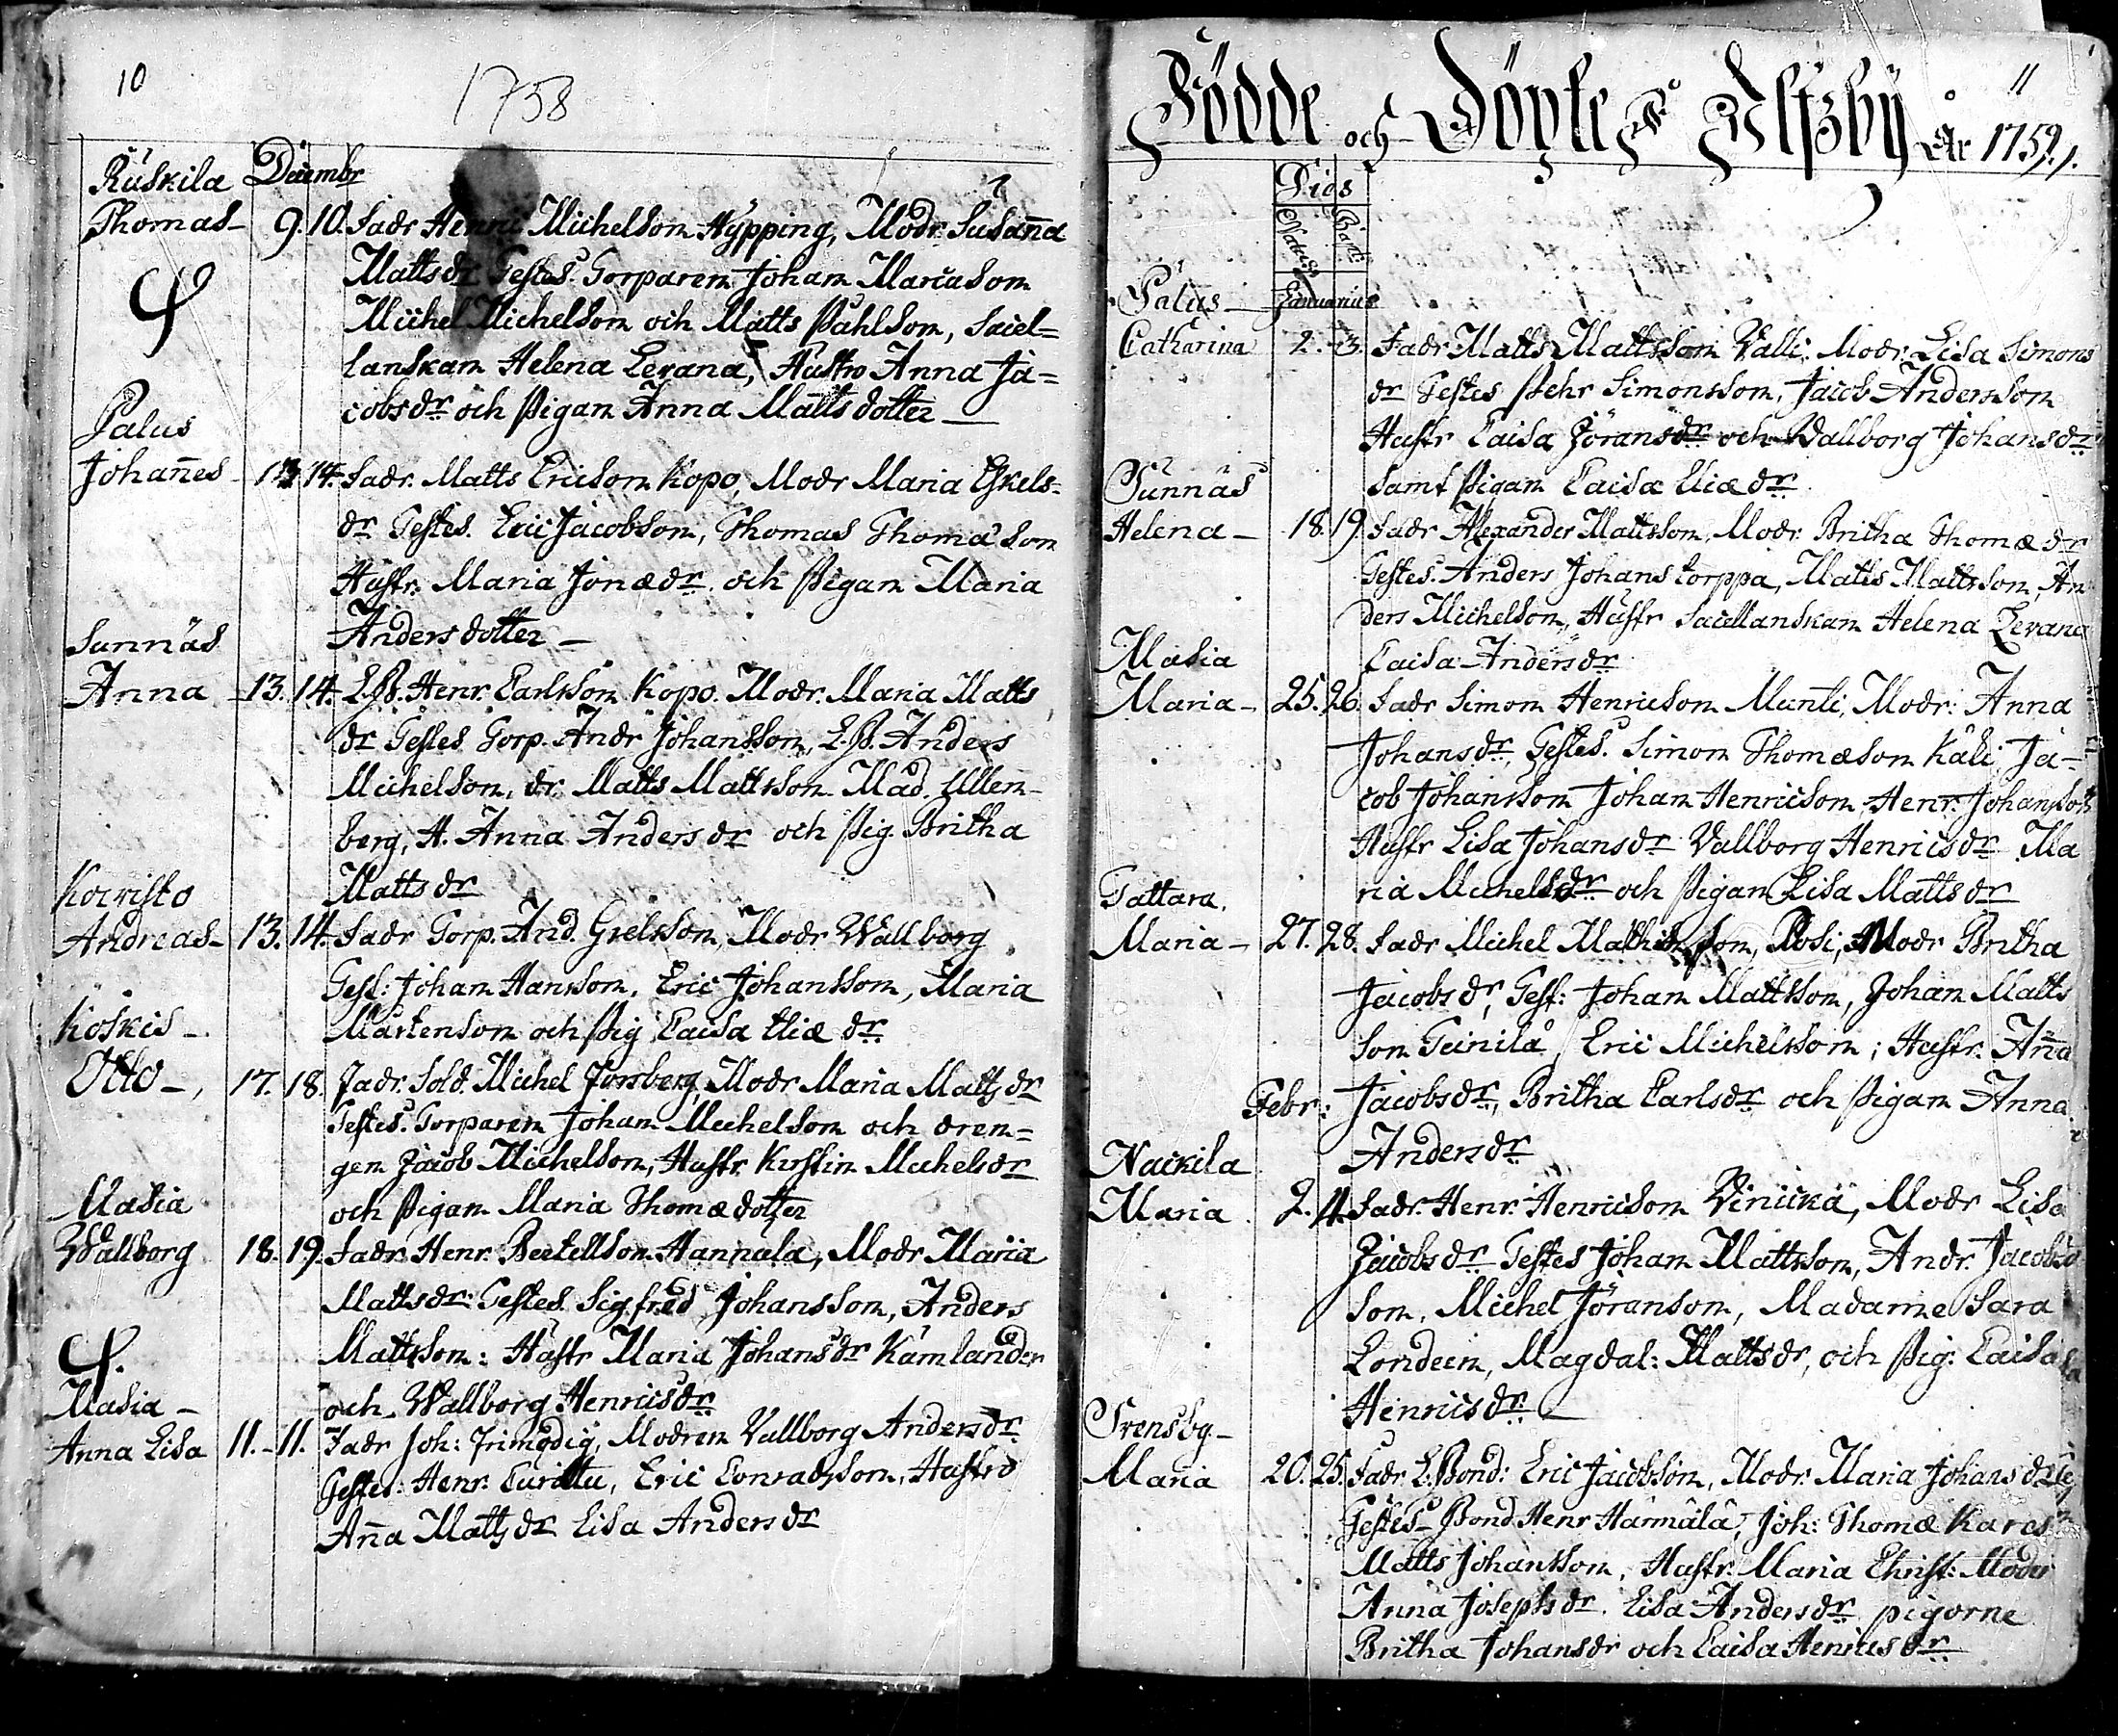 10
1758
Ruskila Decembr
Thomas 9. 10. Fadr Henric Michelsson Nypping, Modr Susanna
Mattsdr Testes. Torparen Johan Marcusson
Michel Michelsson och Matts Påhlsson, Saiel=
lanskan Helena Levana, Hustro Anna Ja=
cobsdr och Pigan Anna Matts dotter
Palus
Johannes 13. 14. Fadr. Matts Ericsson Kopo, Modr Maria Eskels=
dr Testes. Eric Jacobsson, Thomas Thomasson
Hustr. Maria Jonædr. och Pigan Maria
Anders dotter
Sunnäs
Anna 13. 14. L.B. Henr. Carlsson Kopo. Modr. Maria Matts
dr Testes Torp. Andr Johansson, L.B. Anders
Michelsson, dr. Matts Mattsson Mad. Ullen-
berg, H. Anna Andersdr och Pig. Britha
Mattsdr
Koivisto
Andreas 13. 14. Fadr Torp. And. Grelsson, Modr Wallborg
Test: Johan Hansson, Eric Johansson, Maria
Mårtensson och Pig Caisa Eliædr
Koskis
Otto 17. 18. Fadr. Sold. Michel Forsberg, Modr Maria Mattsdr
Testes. Torparen Johan Michelsson och dren=
gen Jacob Michelsson, Hustr. Kirstin Michelsdr
och Pigan Maria Thomædotter
Masia
Wallborg 18. 19. Fadr. Henr. Beetellson Hannula, Modr Maria
Mattsdr: Testes Sigfred Johansson, Anders
Mattsson: Hustr Maria Johansdr Kamlander
och Wallborg Henricsdr
Masia
Anna Lisa 11. 11. Fadr Joh: Frimodig, Modren Vallborg Andersdr
Testes: Henr. Curittu, Eric Conradsson, Hustro
Anna Mattsdr Lisa Andersdr
11
Födde och Döpte Ulfsby År 1759.
Dies
Natus Bapt
Palus Januarius
Catharina 2. 3. Fadr Matts Mattsson Valli. Modr. Lisa Simons
dr Testes Pehr Simonsson, Jacob Andersson
Hustr Caisa Jöransdr och Wallborg Johansdr
samt Pigan Caisa Eliædr
Sunnäs
Helena 18. 19. Fadr Alexander Mattsson, Modr. Britha Thomædr
Testes. Anders Johans torppa, Matts Mattsson, An
ders Michelsson, Hustr Saiellanskan Helena Levana
Caisa Andersdr
Masia
Maria 25. 26. Fadr Simon Henricson Munti, Modr: Anna
Johansdr, Testes. Simon Thomæson Kali, Ja-
cob Johansson Johan Henricson, Henr. Johansson
Hustr Lisa Johansdr Vallborg Henricsdr Ma
ria Michelsdr och Pigan Lisa Mattsdr
Tattara.
Maria 27. 28. Fadr Michel Rosi, Modr Britha
Jacobsdr, Test: Johan Mattsson, Johan Matts
son Teinilä, Eric Michelsson; Hustr. Anna
Febr: Jacobsdr, Britha Carlsdr och Pigan Anna
Andersdr
Nackila
Maria 2. 4. Fadr. Henr. Henricson Vinickä, Modr Lisa
Jacobsdr Testes Johan Mattsson, Andr. Jacobs
son, Michel Jöranson, Madame Sara
Londeen, Magdal: Mattsdr, och Pig: Caisa
Henricsdr
Svensby
Maria 20. 25. Fadr L.Bond: Eric Jacobsson, Modr Maria Johansdr
Testes Bond Henr Hannula, Joh: Thomæ Kares
Matts Johansson, Hustr. Maria Christ: Moder
Anna Josephsdr. Lisa Andersdr pigorne
Britha Johansdr och Caisa Henricsdr